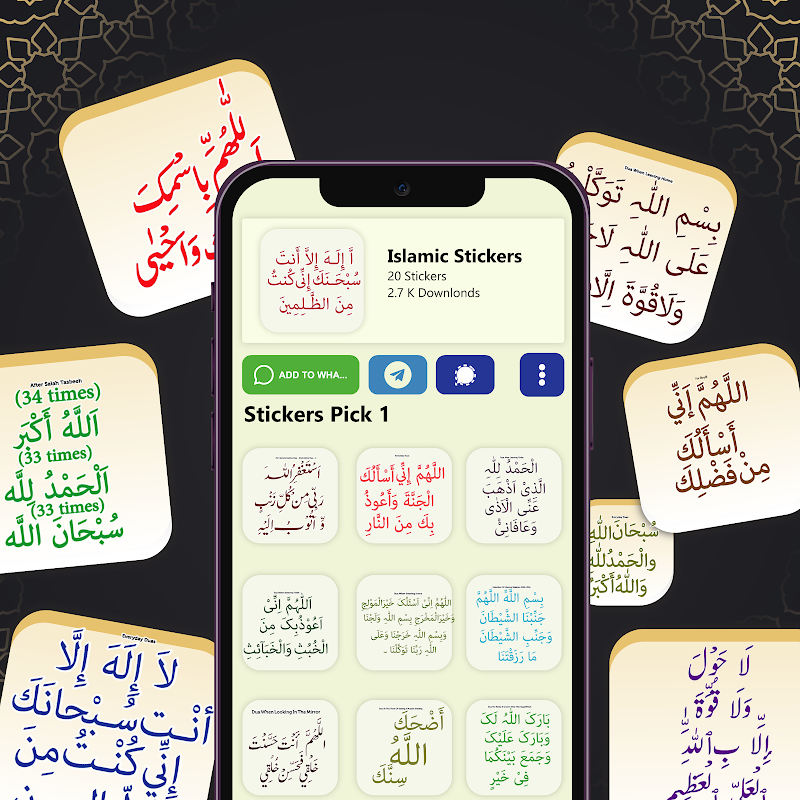 اللّٰهُمَّ
بِّاسْمِكَ
وَاَحْيٰى
Dua When Leaving Home
بِسْمِ اللّٰہِ تَوَكَّلْ
عَلَى اللّٰہِ لَاحَ
وَلَاقُوَّةَ اِلَّا
اَّ إِلَـهَ إِلاَّ أَنتَ
سُبْحَـنَكَ إِنِّى كُنتُ
مِنَ الظَّـلِمِينَ
Islamic Stickers
20 Stickers
2.7 K Downlonds
ADD TO WHA...
Stickers Pick 1
After Salah Tasbeeh
(34 times)
اَللَّهُ أَكْبَر
(33 times)
اَلْحَمْدُ لِلَّه
(33 times)
سُبْحَانَ اللَّه
اللَّهُمَّ إِنِّي
أَسْأَلُكَ
مِنْ فَضْلِكَ
اَسْتَغْفِرُ اللهَ
رَبِّىْ مِنْ كُلِّ ذَنْبٍ
وَّ اَتُوْبُ اِلَيْهِ
اللَّهُمَّ إِنِّي أَسْأَلُكَ
الْجَنَّةَ وَأَعُوذُ
بِكَ مِنَ النَّارِ
الْحَمْدُ لِلَّهِ
الَّذِيْ اَذْهَبَ
عَنِّى الْاَذٰى
وَعَافَانِيْ
سُبْحَانَ اللهِ
والْحَمْدُلله
وَاللهُ أَكْبَرُ
اَللّٰهُمَّ اِنِّىْ
اَعُوْذُبِکَ مِنَ
الْخُبُثِ وَالْخَبَآئِثِ
اللّٰهُمَّ اِنِّىْ اَسْئَلُکَ خَیْرَالْمَوْلِجِ
وَخَیْرَالْمَخْرَجِ بِسْمِ اللّٰہِ وَلَجْنَا
وَبِسْمِ اللّٰہِ خَرَجْنَا وَعَلَى
اللّٰہِ رَبِّنَا تَوَکَّلْنَا ۔
بِسْمِ اللَّهِ اللَّهُمَّ
جَنِّبْنَا الشَّيْطَانَ
وَجَنِّبِ الشَّيْطَانَ
مَا رَزَقْتَنَا
Everyday Duas
لاَ إِلَهَ إِلَّا
أَنْتَ سُبْحَانَكَ
إِنِّي كُنْتُ مِنَ
Dua When Looking In The Mirror
اللّٰهُمَّ اَنْتَ حَسَّنْتَ
خَلْقِيْ فَحَسِّنْ خُلُقِيْ
أَضْحَكَ
اللَّهُ
سِنَّكَ
بَارَكَ اللَّهُ لَكَ
وَبَارَكَ عَلَيْكَ
وَجَمَعَ بَيْنَكُمَا
فِيْ خَيْرٍ
لَا حَوْلَ
وَلَا قُوَّةَ
اِلَّا بِاللّٰهِ
الْعَلِيِّ الْعَظِيْمِ